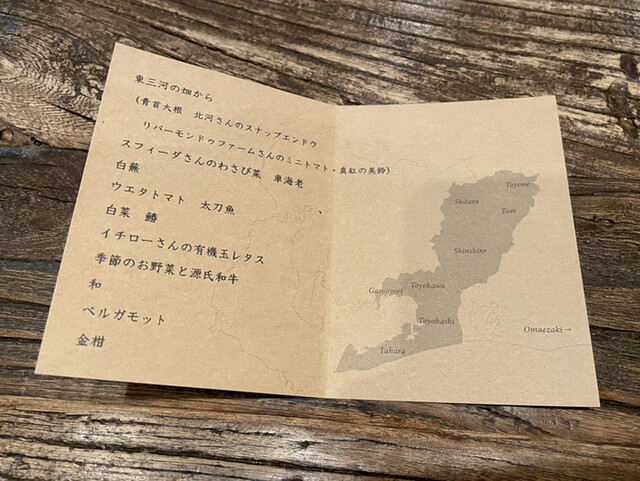 東三河の畑から
(青首大根 北河さんのスナップエンドウ
リバーモンドゥファームさんのミニトマト・真紅の美鈴)
スフィーダさんのわさび菜 車海老
白蕪
ウエタトマト 太刀魚
白菜 鰆
イチローさんの有機玉レタス
季節のお野菜と源氏和牛
和
ベルガモット
金柑
Toyone
Shitara
Toei
Shinshiro
Gamagori
Toyokawa
Toyohashi
Omaezaki→
Tahara